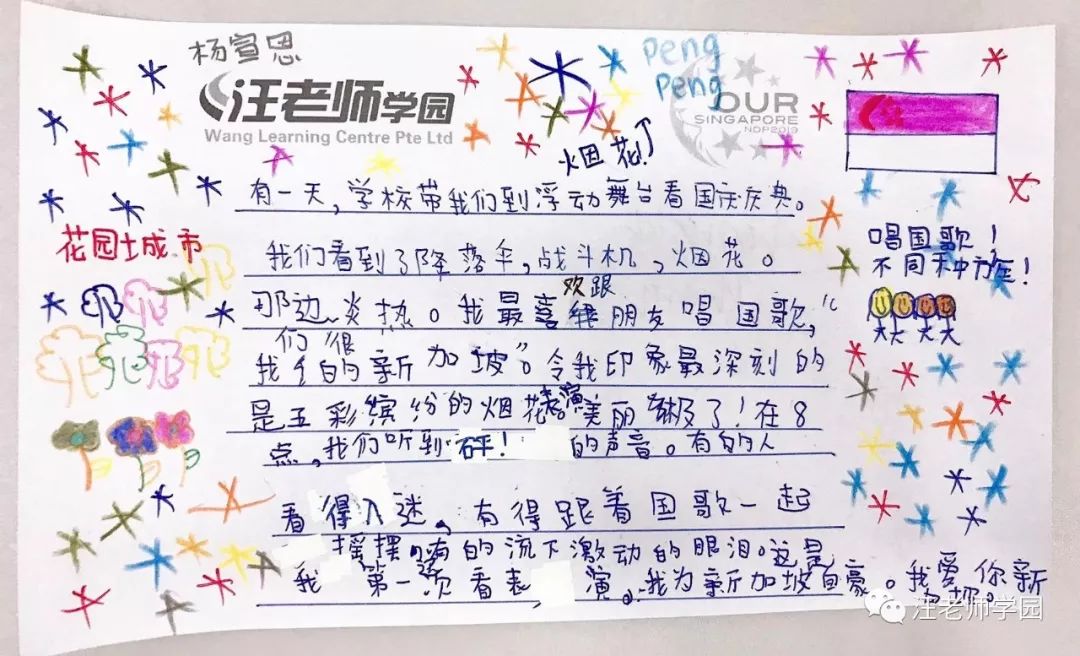 杨宣恩
peng
peng
汪老师学园
Wang Learning Centre Pte Ltd
OUR
SINGAPORE
NDP2019
烟花!
有一天,学校带我们到浮动舞台看国庆庆典。
花园城市
唱国歌!
不同种族!
我们看到了降落伞,战斗机、烟花。
那边炎热。我最喜欢跟朋友唱国歌,“
我们的新加坡”。令我印象最深刻的
是五彩缤纷的烟花表演。美丽极了!在8
点,我们听到“砰!的声音。有的人
看得入迷,有得跟着国歌一起
摇摆,有的流下激动的眼泪。这是
我第一次看表演。我为新加坡自豪。我爱你新
加坡。
汪老师学园